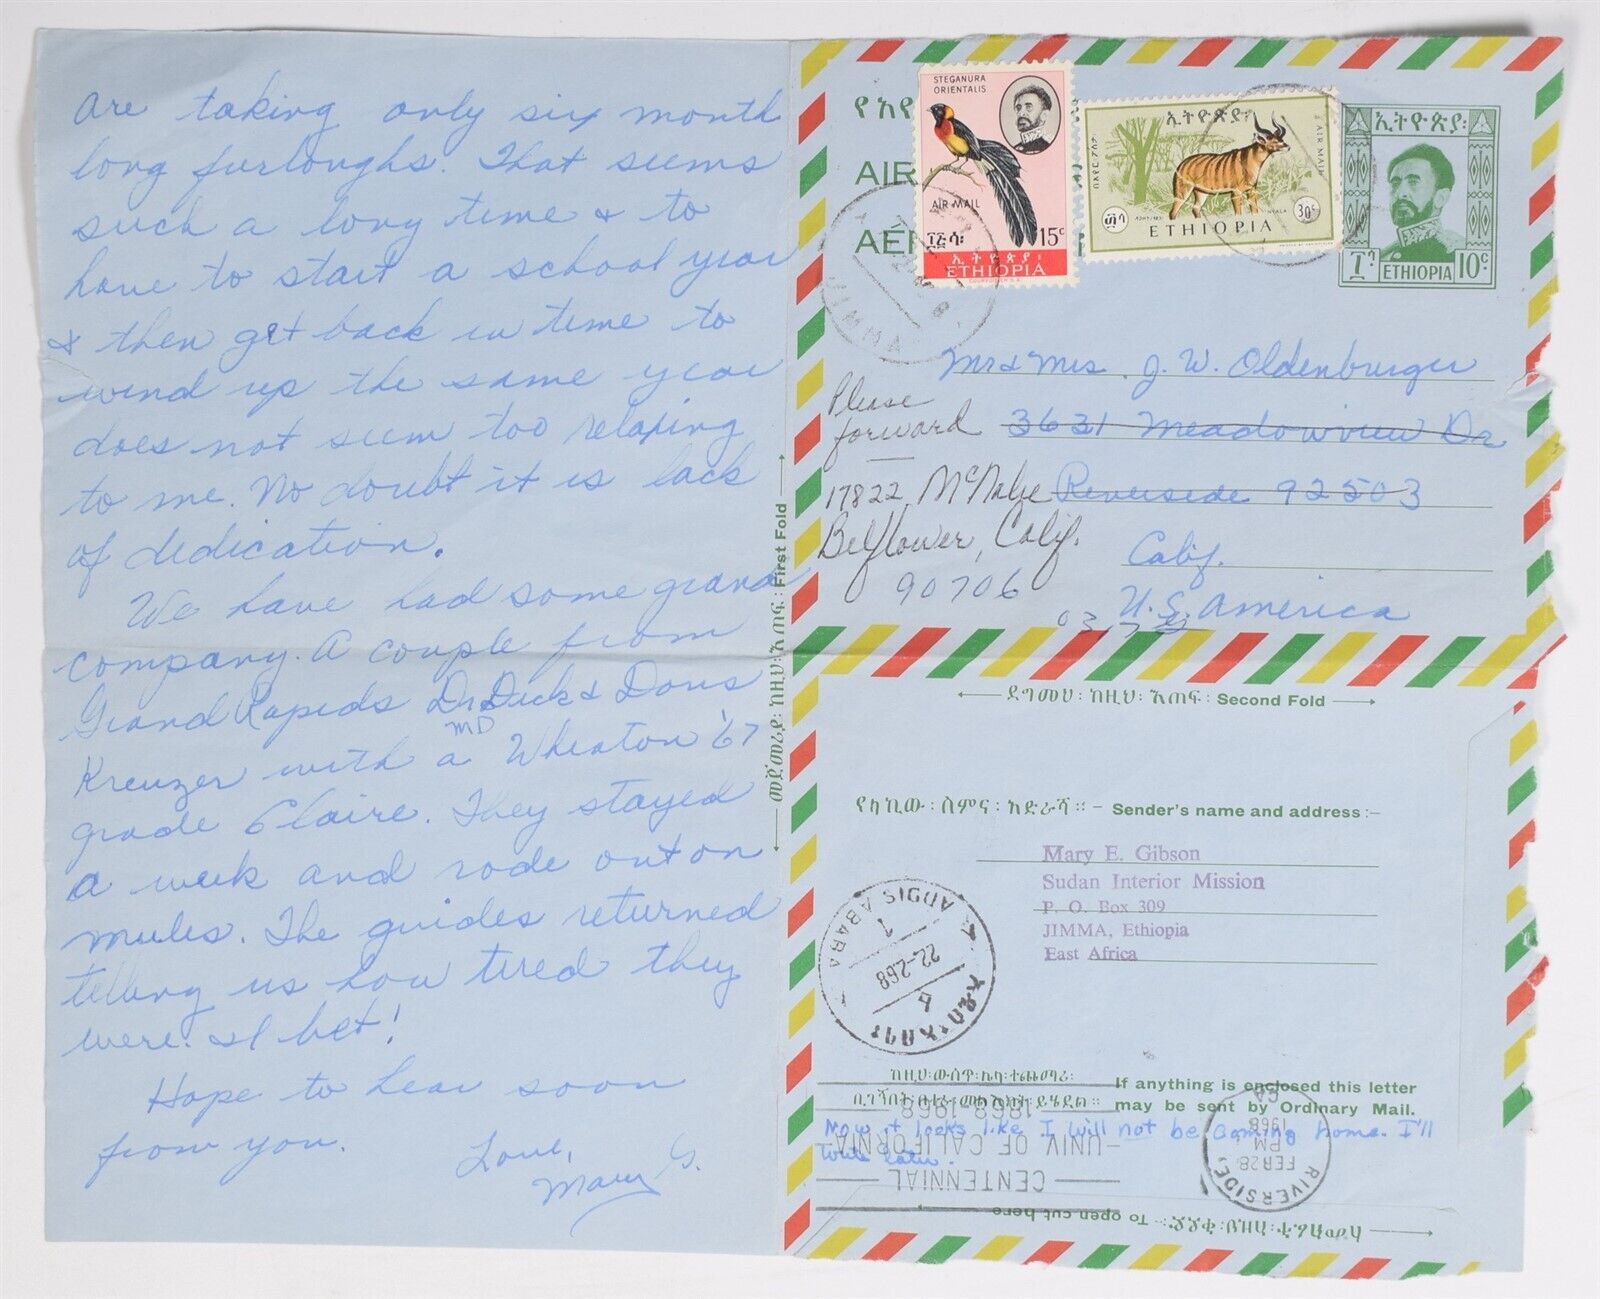 are taking only six month
long furloughs. That seems
such a long time & to
have to start a school year
& then get back in time to
wind up the same year
does not seem too relaxing
to me. No doubt it is lack
of dedication.
We have had some grand
company. A couple from
Grand Rapids Dr Dick & Doris
Kreuzer with a MD Wheaton '67
grade Claire. They stayed
a week and rode out on
mules. The guides returned
telling us how tired they
were. I bet!
Hope to hear soon
from you.
Love,
Mary G.
First Fold
AIR
STEGANURA
ORIENTALIS
AIR MAIL
15c
ኢትዮጵያ፡
ETHIOPIA
ኢትዮጵያ፡
AIR MAIL
NYALA
30c
ETHIOPIA
ኢትዮጵያ፡
ETHIOPIA 10c
JIMMA
Mr & Mrs. J. W. Oldenburger
Please
forward 3631 Meadowview Dr
17822 McNabe Riverside 92503
Belflower, Calif. Calif.
90706 U.S. America
ደግመህ፡ ከዚህ፡ እጠፍ፡ Second Fold
የላኪው፡ ስምና፡ አድራሻ። Sender's name and address:-
Mary E. Gibson
Sudan Interior Mission
P. O. Box 309
JIMMA, Ethiopia
East Africa
ADDIS ABABA
22-2.68
If anything is enclosed this letter
may be sent by Ordinary Mail.
Now it looks like I will not be coming home. I'll
write later.
1868-1968
UNIV OF CALIFORNIA
CENTENNIAL
RIVERSIDE,
CA
FEB 28
PM
1968
To open cut here